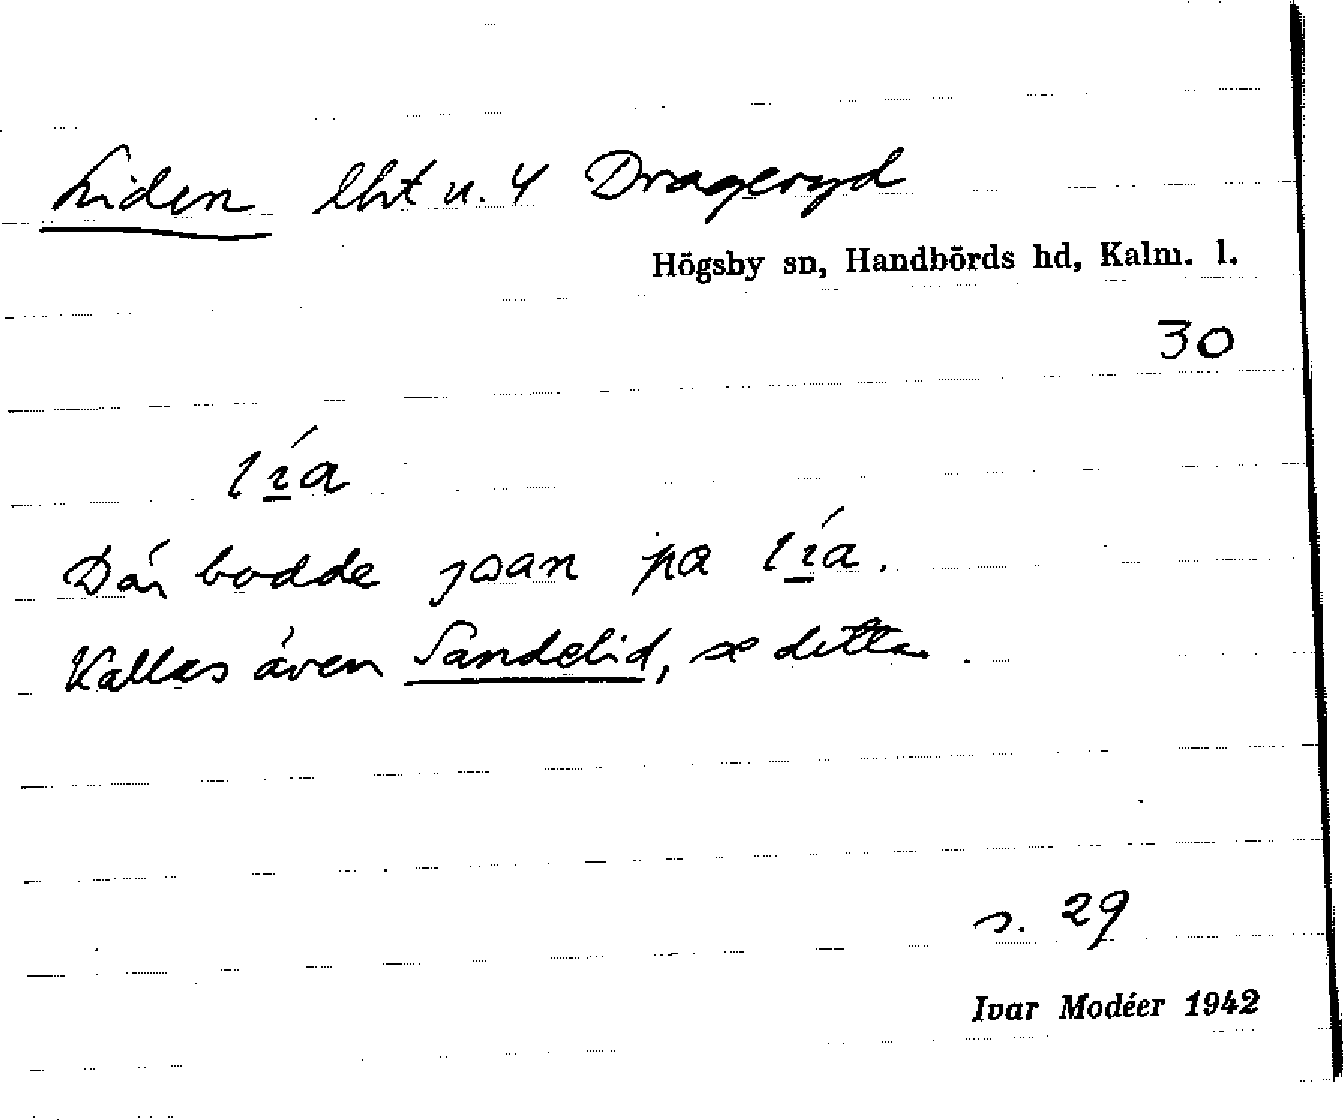 Liden lht u. 4 Drageryd
Högsby sn, Handbörds hd, Kalm. l.
30
Där bodde joan pa
Kallas även Sandelid, se detta.
s. 29
Ivar Modéer 1942